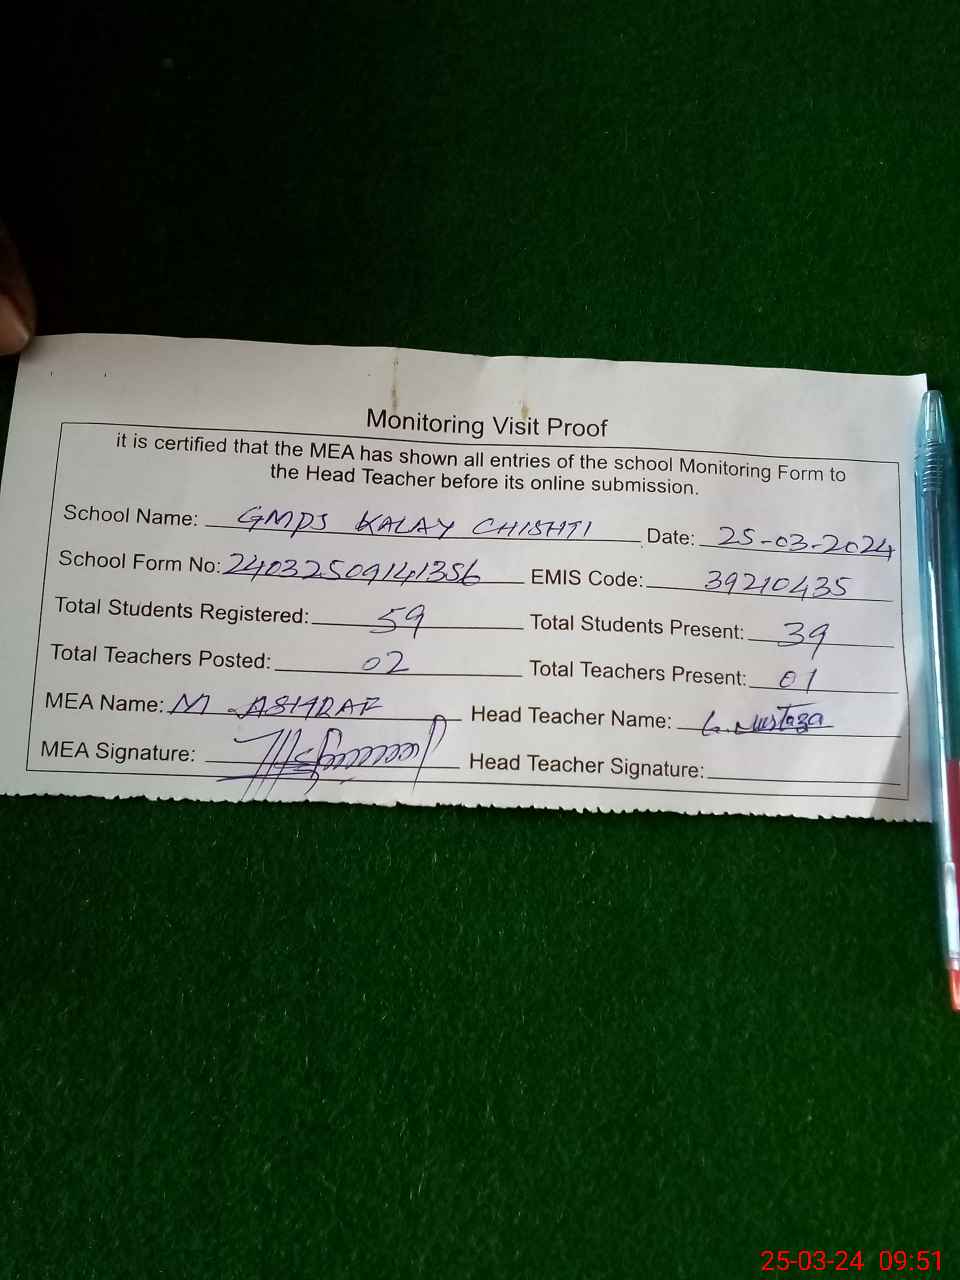 Monitoring Visit Proof
it is certified that the MEA has shown all entries of the school Monitoring Form to
the Head Teacher before its online submission.
School Name: GMPS KALAY CHISHTI Date: 25-03-2024
School Form No: 24032509141356 EMIS Code: 39210435
Total Students Registered: 59 Total Students Present: 39
Total Teachers Posted: 02 Total Teachers Present: 01
MEA Name: M. ASHRAF Head Teacher Name: G. Murtaza
MEA Signature: Head Teacher Signature:
25-03-24 09:51